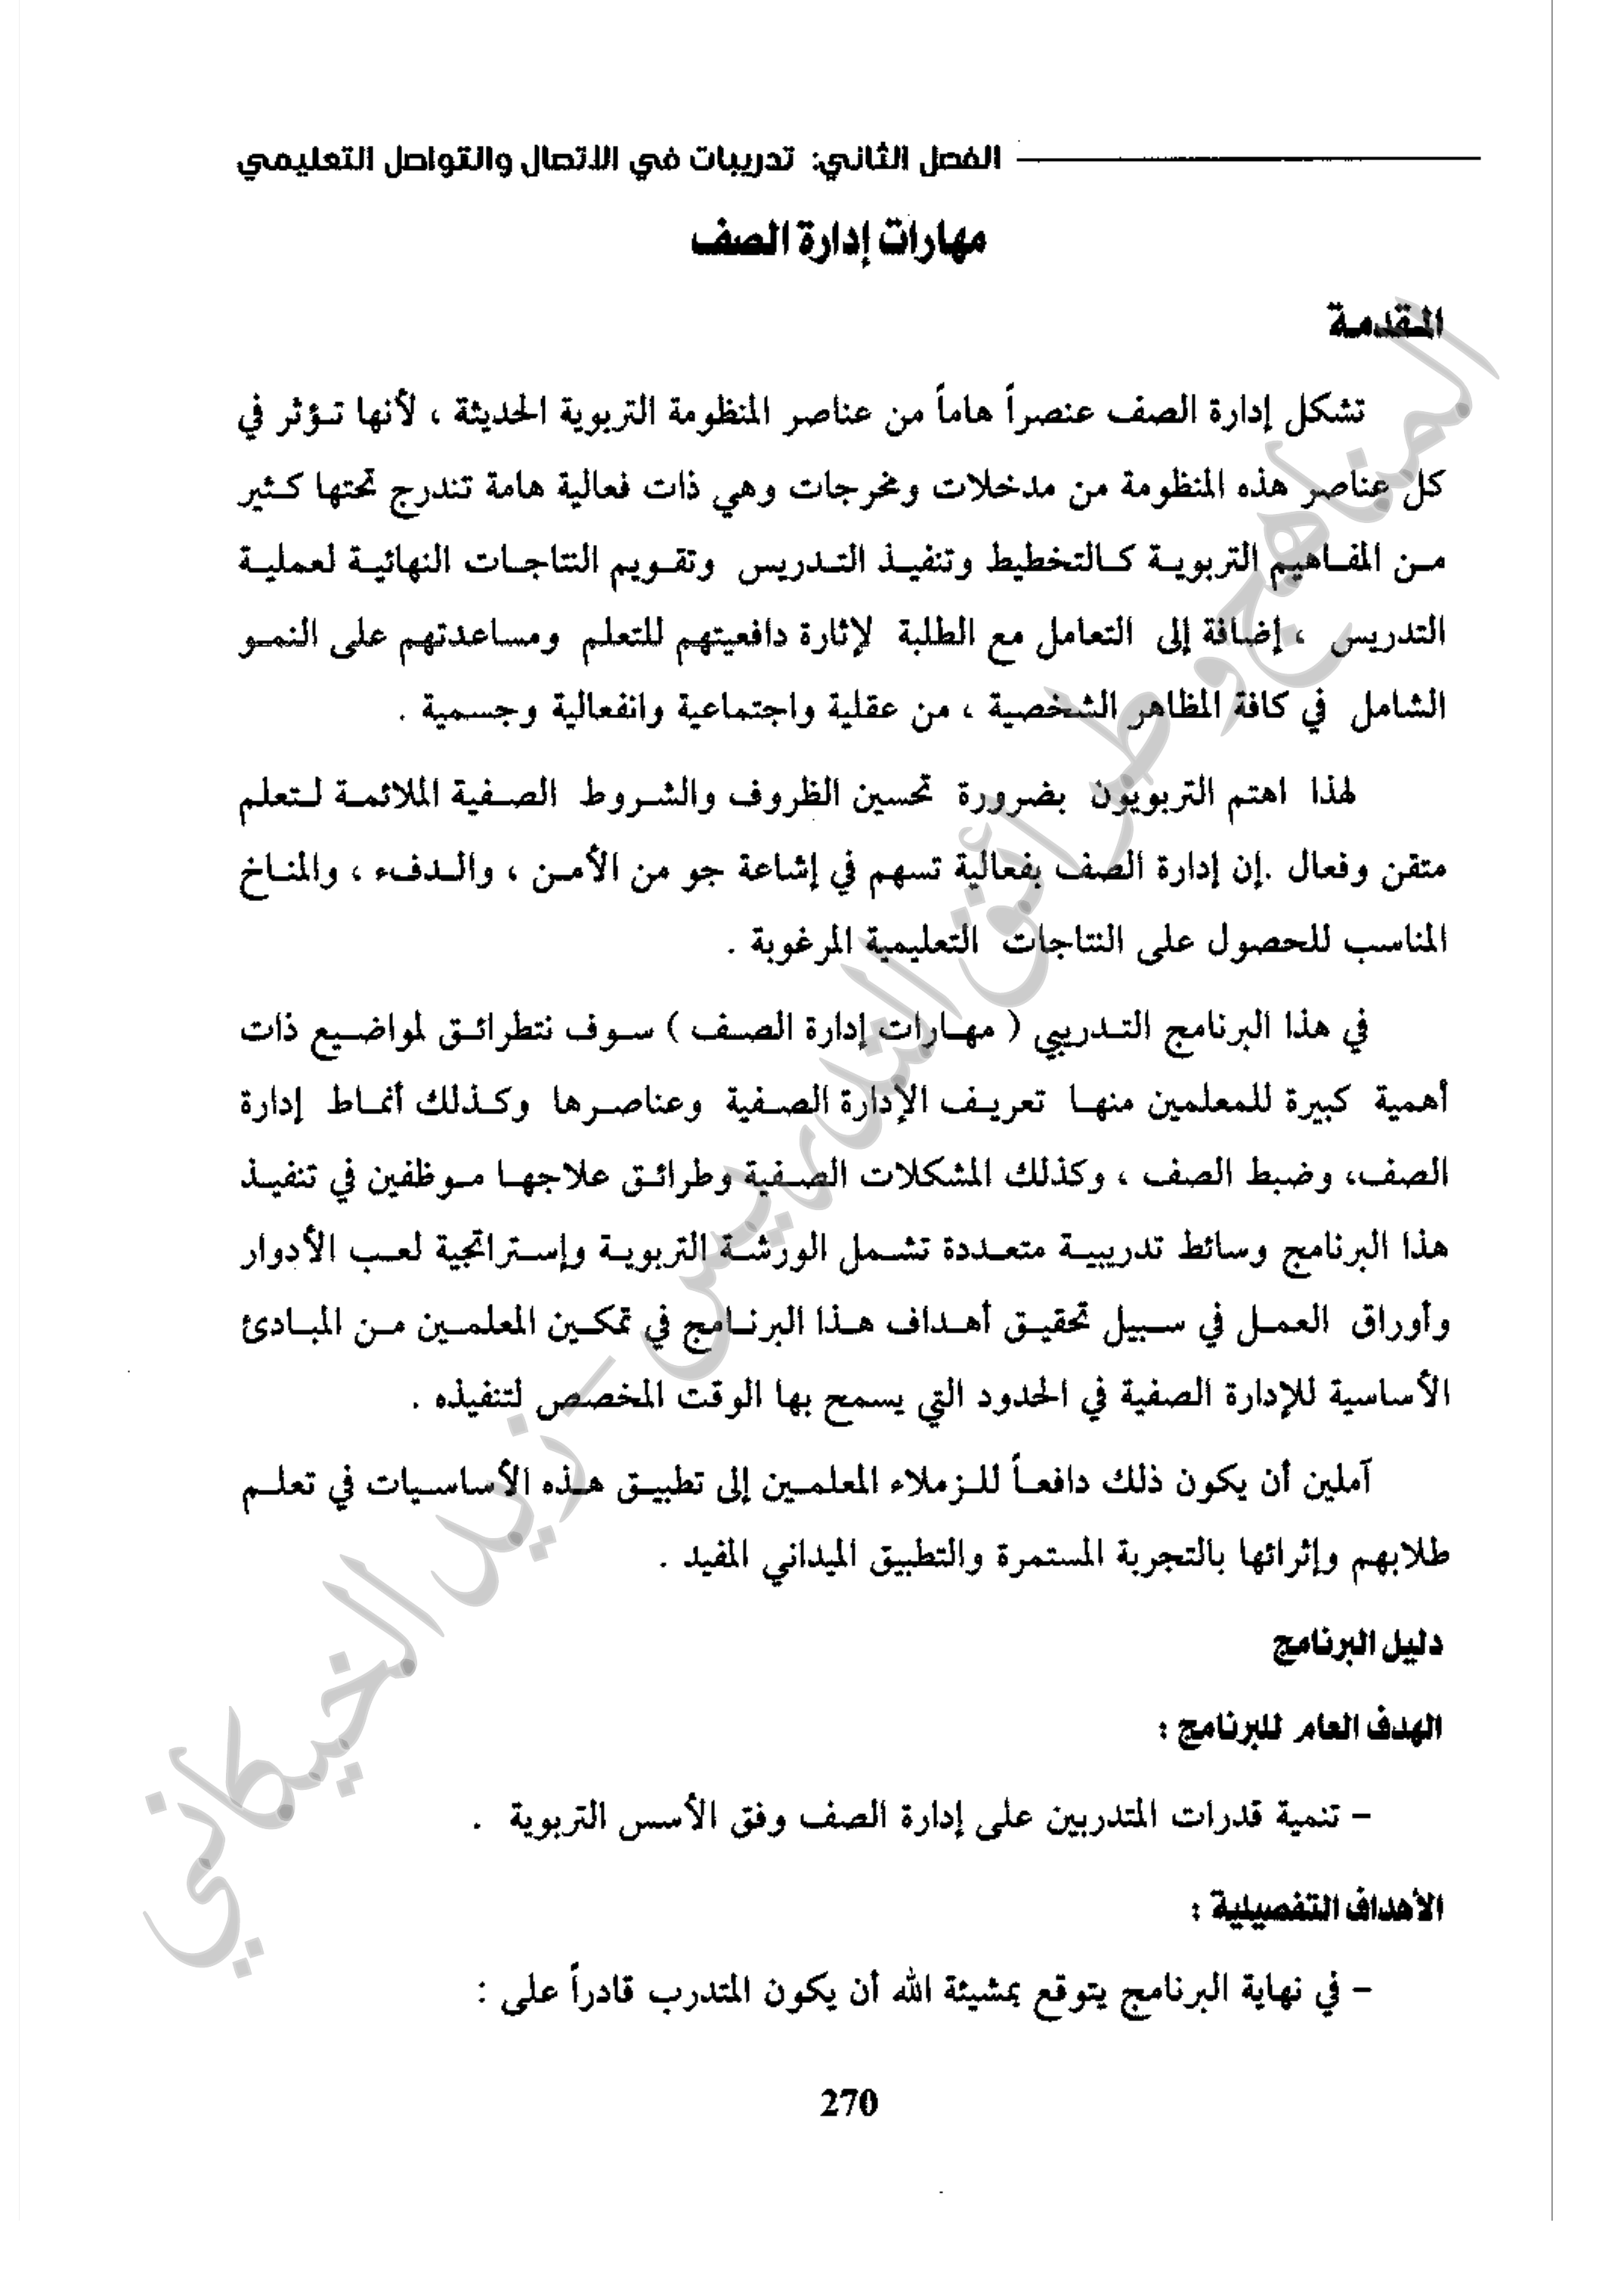 الفصل الثاني: تدريبات في الاتصال والتواصل التعليمي
مهارات إدارة الصف
المقدمة
تشكل إدارة الصف عنصراً هاماً من عناصر المنظومة التربوية الحديثة ، لأنها تؤثر في
كل عناصر هذه المنظومة من مدخلات ومخرجات وهي ذات فعالية هامة تندرج تحتها كثير
من المفاهيم التربوية كالتخطيط وتنفيذ التدريس وتقويم النتاجات النهائية لعملية
التدريس ، إضافة إلى التعامل مع الطلبة لإثارة دافعيتهم للتعلم ومساعدتهم على النمو
الشامل في كافة المظاهر الشخصية ، من عقلية واجتماعية وانفعالية وجسمية .
لهذا اهتم التربويون بضرورة تحسين الظروف والشروط الصفية الملائمة لتعلم
متقن وفعال .إن إدارة الصف بفعالية تسهم في إشاعة جو من الأمن ، والدفء ، والمناخ
المناسب للحصول على النتاجات التعليمية المرغوبة .
في هذا البرنامج التدريبي ( مهارات إدارة الصف ) سوف نتطرائق لمواضيع ذات
أهمية كبيرة للمعلمين منها تعريف الإدارة الصفية وعناصرها وكذلك أنماط إدارة
الصف، وضبط الصف ، وكذلك المشكلات الصفية وطرائق علاجها موظفين في تنفيذ
هذا البرنامج وسائط تدريبية متعددة تشمل الورشة التربوية وإستراتجية لعب الأدوار
وأوراق العمل في سبيل تحقيق أهداف هذا البرنامج في تمكين المعلمين من المبادئ
الأساسية للإدارة الصفية في الحدود التي يسمح بها الوقت المخصص لتنفيذه .
آملين أن يكون ذلك دافعاً للزملاء المعلمين إلى تطبيق هذه الأساسيات في تعلم
طلابهم وإثرائها بالتجربة المستمرة والتطبيق الميداني المفيد .
دليل البرنامج
الهدف العام للبرنامج :
– تنمية قدرات المتدربين على إدارة الصف وفق الأسس التربوية .
الأهداف التفصيلية :
– في نهاية البرنامج يتوقع بمشيئة الله أن يكون المتدرب قادراً على :
270
المناهج وطرائق التدريس - زيد الخيكاني